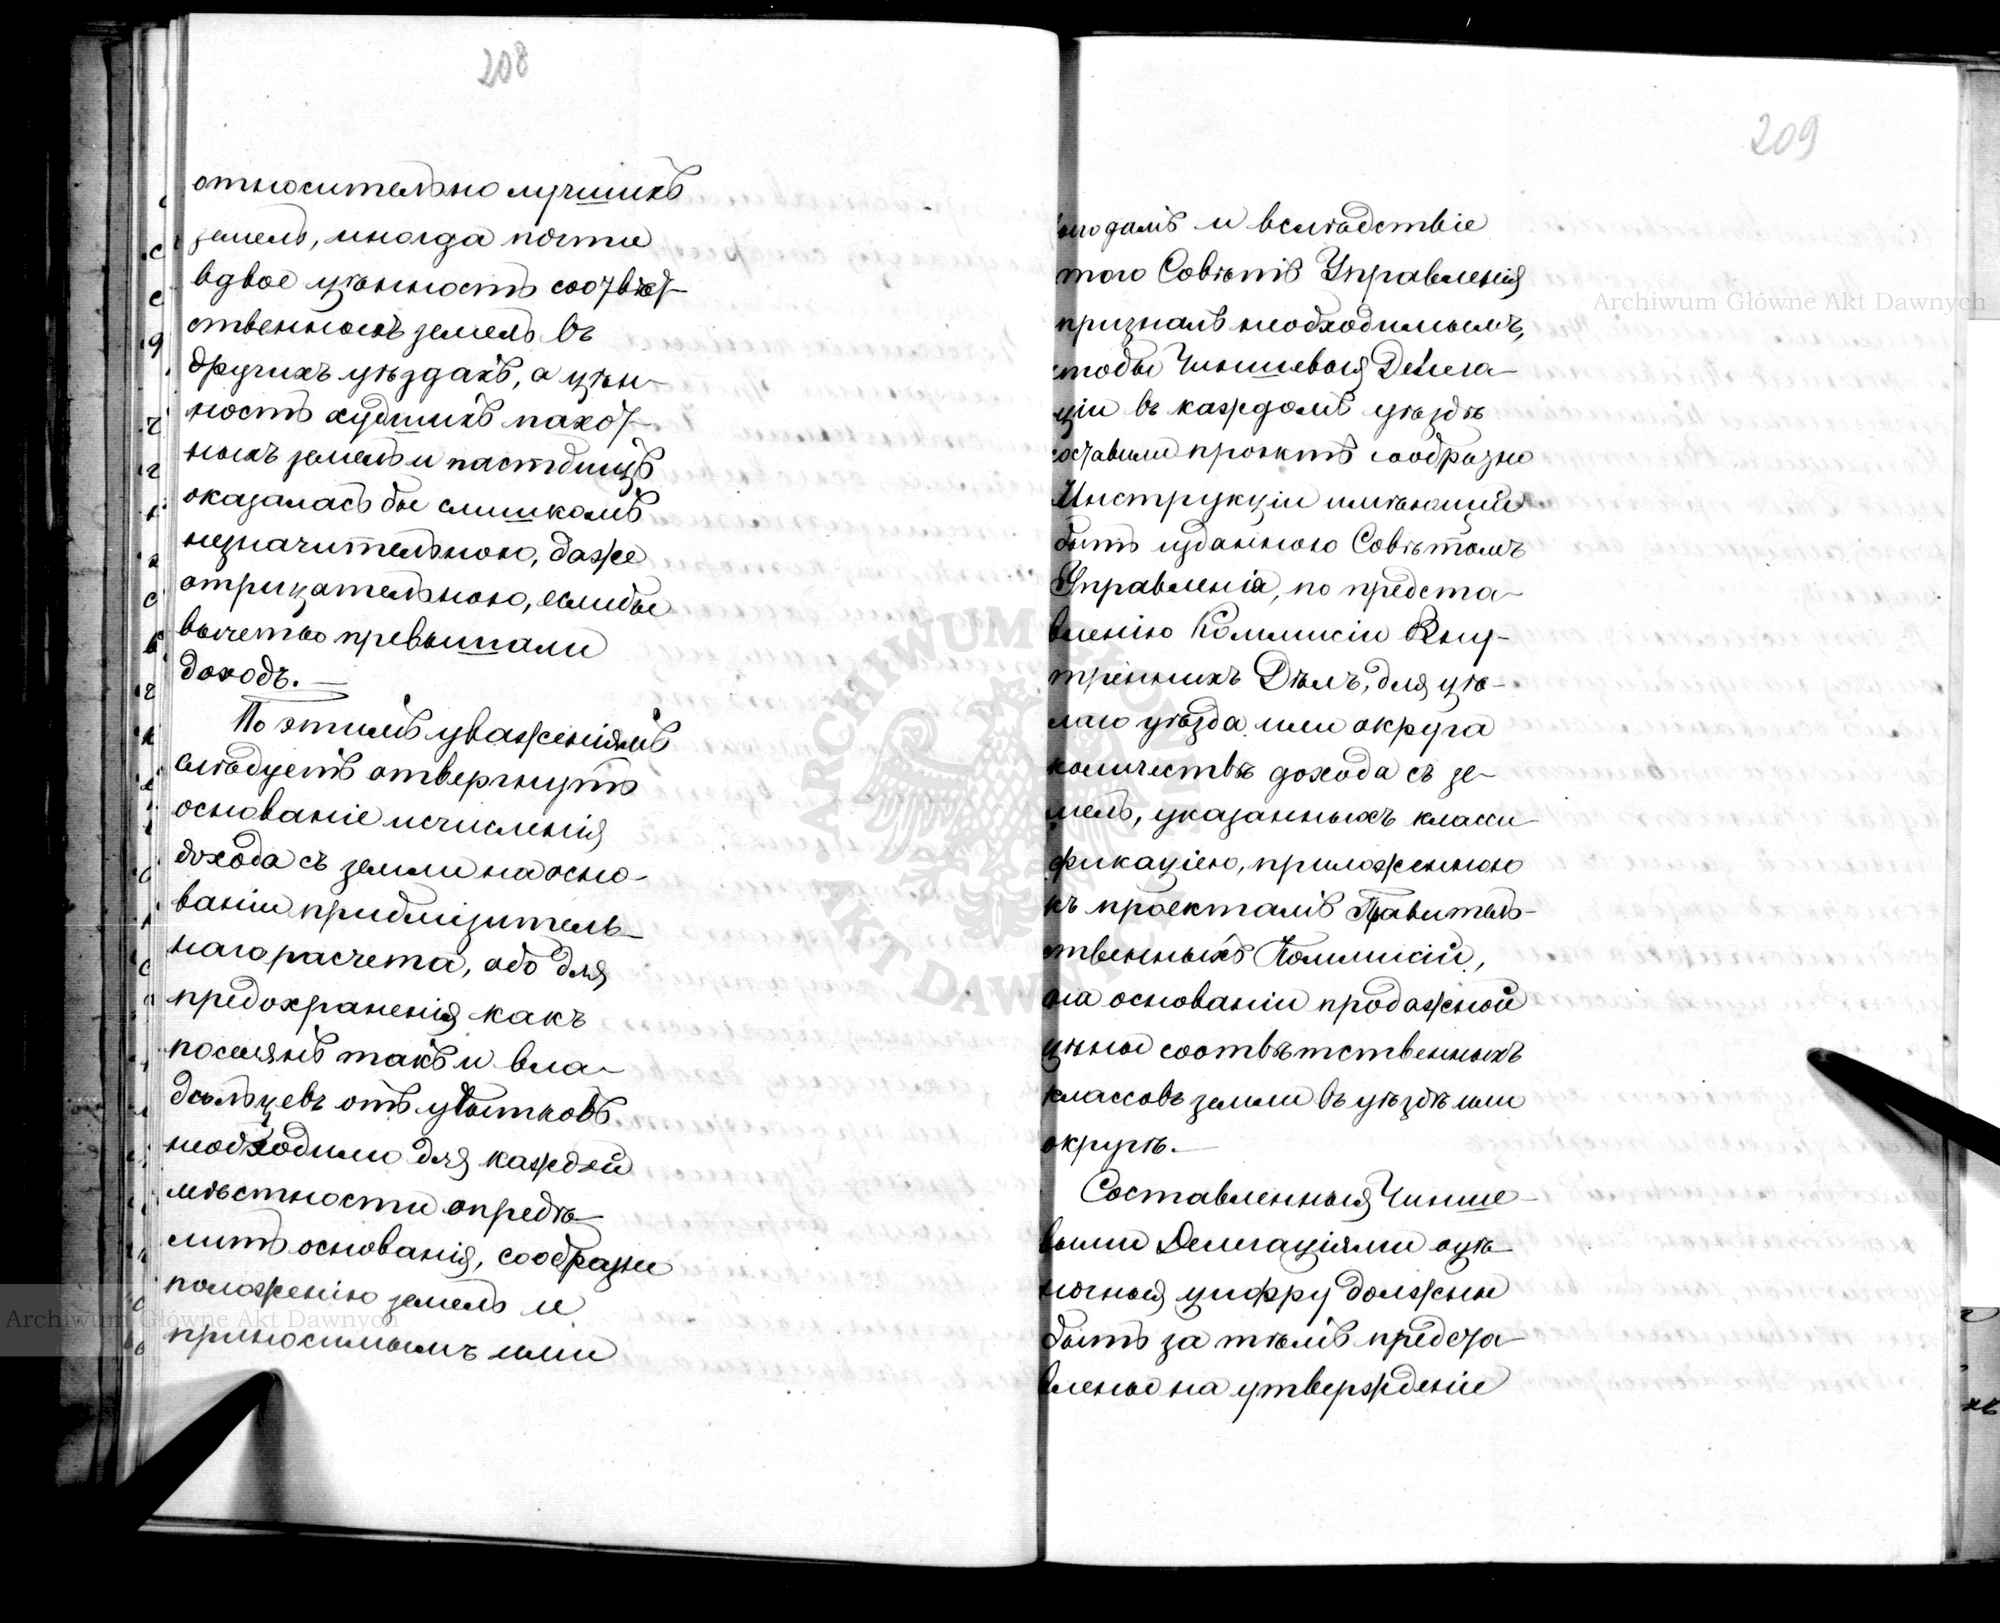 208
относительно лучшихъ
земель, иногда почти
вдвое цѣнность соотвѣт-
ственныхъ земель въ
другихъ уѣздахъ, а цѣн-
ность худшихъ пахот-
ныхъ земель и пастбищъ
оказалась бы слишкомъ
незначительною, даже
отрицательною, еслибы
вычеты превышали
доходъ.—
По этимъ уваженіямъ
слѣдуетъ отвергнуть
основаніе исчисленія
дохода съ земли на осно-
ваніи приблизитель-
наго расчета, або для
предохраненія какъ
поселянъ такъ и вла-
дѣльцевъ отъ убытковъ
необходимо для каждой
мѣстности опредѣ-
лить основанія, сообразно
положенію земель и
приносимымъ ими
209
выгодамъ и вслѣдствіе
того Совѣтъ Управленія
призналъ необходимымъ,
чтобы Чиншевыя Делега-
ціи въ каждомъ уѣздѣ
составили проектъ сообразно
Инструкціи имѣющей
быть изданною Совѣтомъ
Управленія, по предста-
вленію Коммисіи Вну-
тренныхъ Дѣлъ, для цѣ-
лаго уѣзда или округа
количествѣ дохода съ зе-
мель, указанныхъ класси-
фикаціею, приложенною
къ проектамъ Правитель-
ственныхъ Коммисій,
на основаніи продажной
цѣны соотвѣтственныхъ
классовъ земли въ уѣздѣ или
округѣ.—
Составленныя Чинше-
выми Делегаціями оцѣ-
ночныя цифры должны
быть за тѣмъ предста-
влены на утвержденіе
Archiwum Główne Akt Dawnych
Archiwum Główne Akt Dawnych
ARCHIWUM GŁÓWNE AKT DAWNYCH